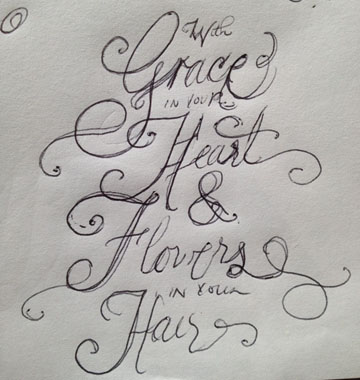 With
Grace
IN YOUR
Heart
&
Flowers
IN YOUR
Hair